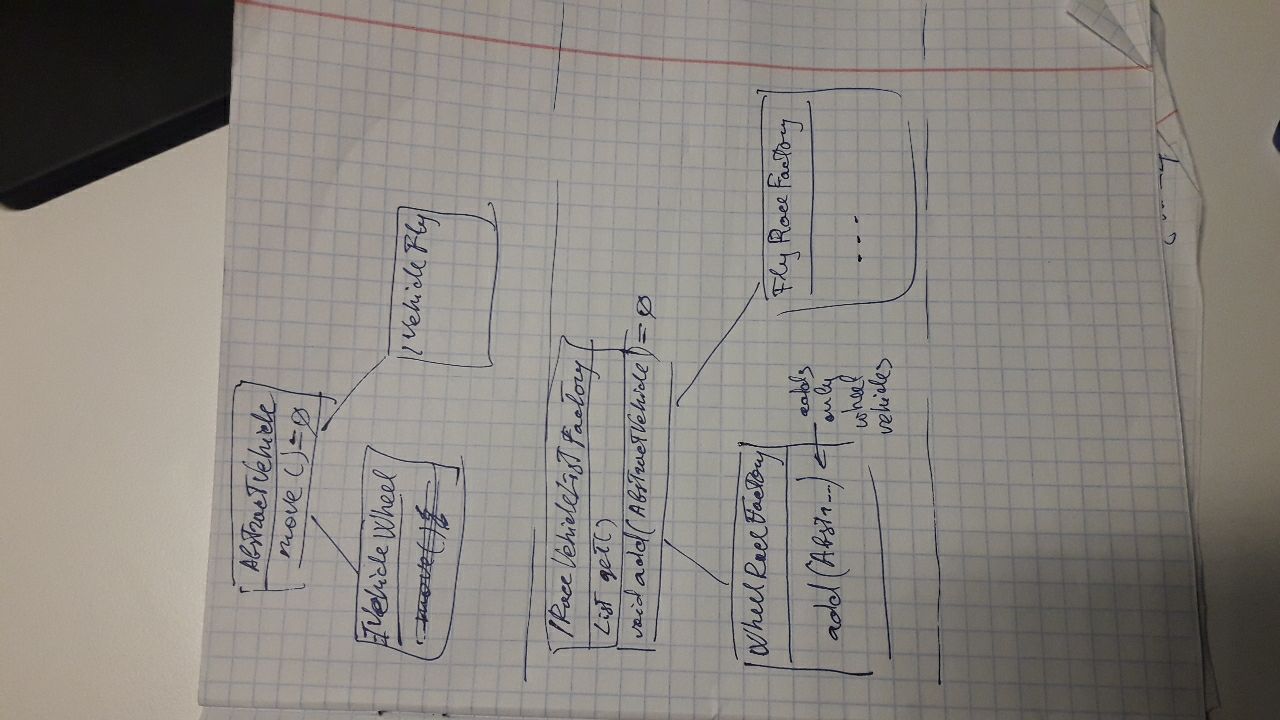 AbstractVehicle
move()=0
IVehicleWheel
move()
IVehicleFly
IRaceVehicleListFactory
List get()
void add(AbstractVehicle)=0
WheelRaceFactory
add(Abstr...) ← adds
only
wheel
vehicles
FlyRaceFactory
...